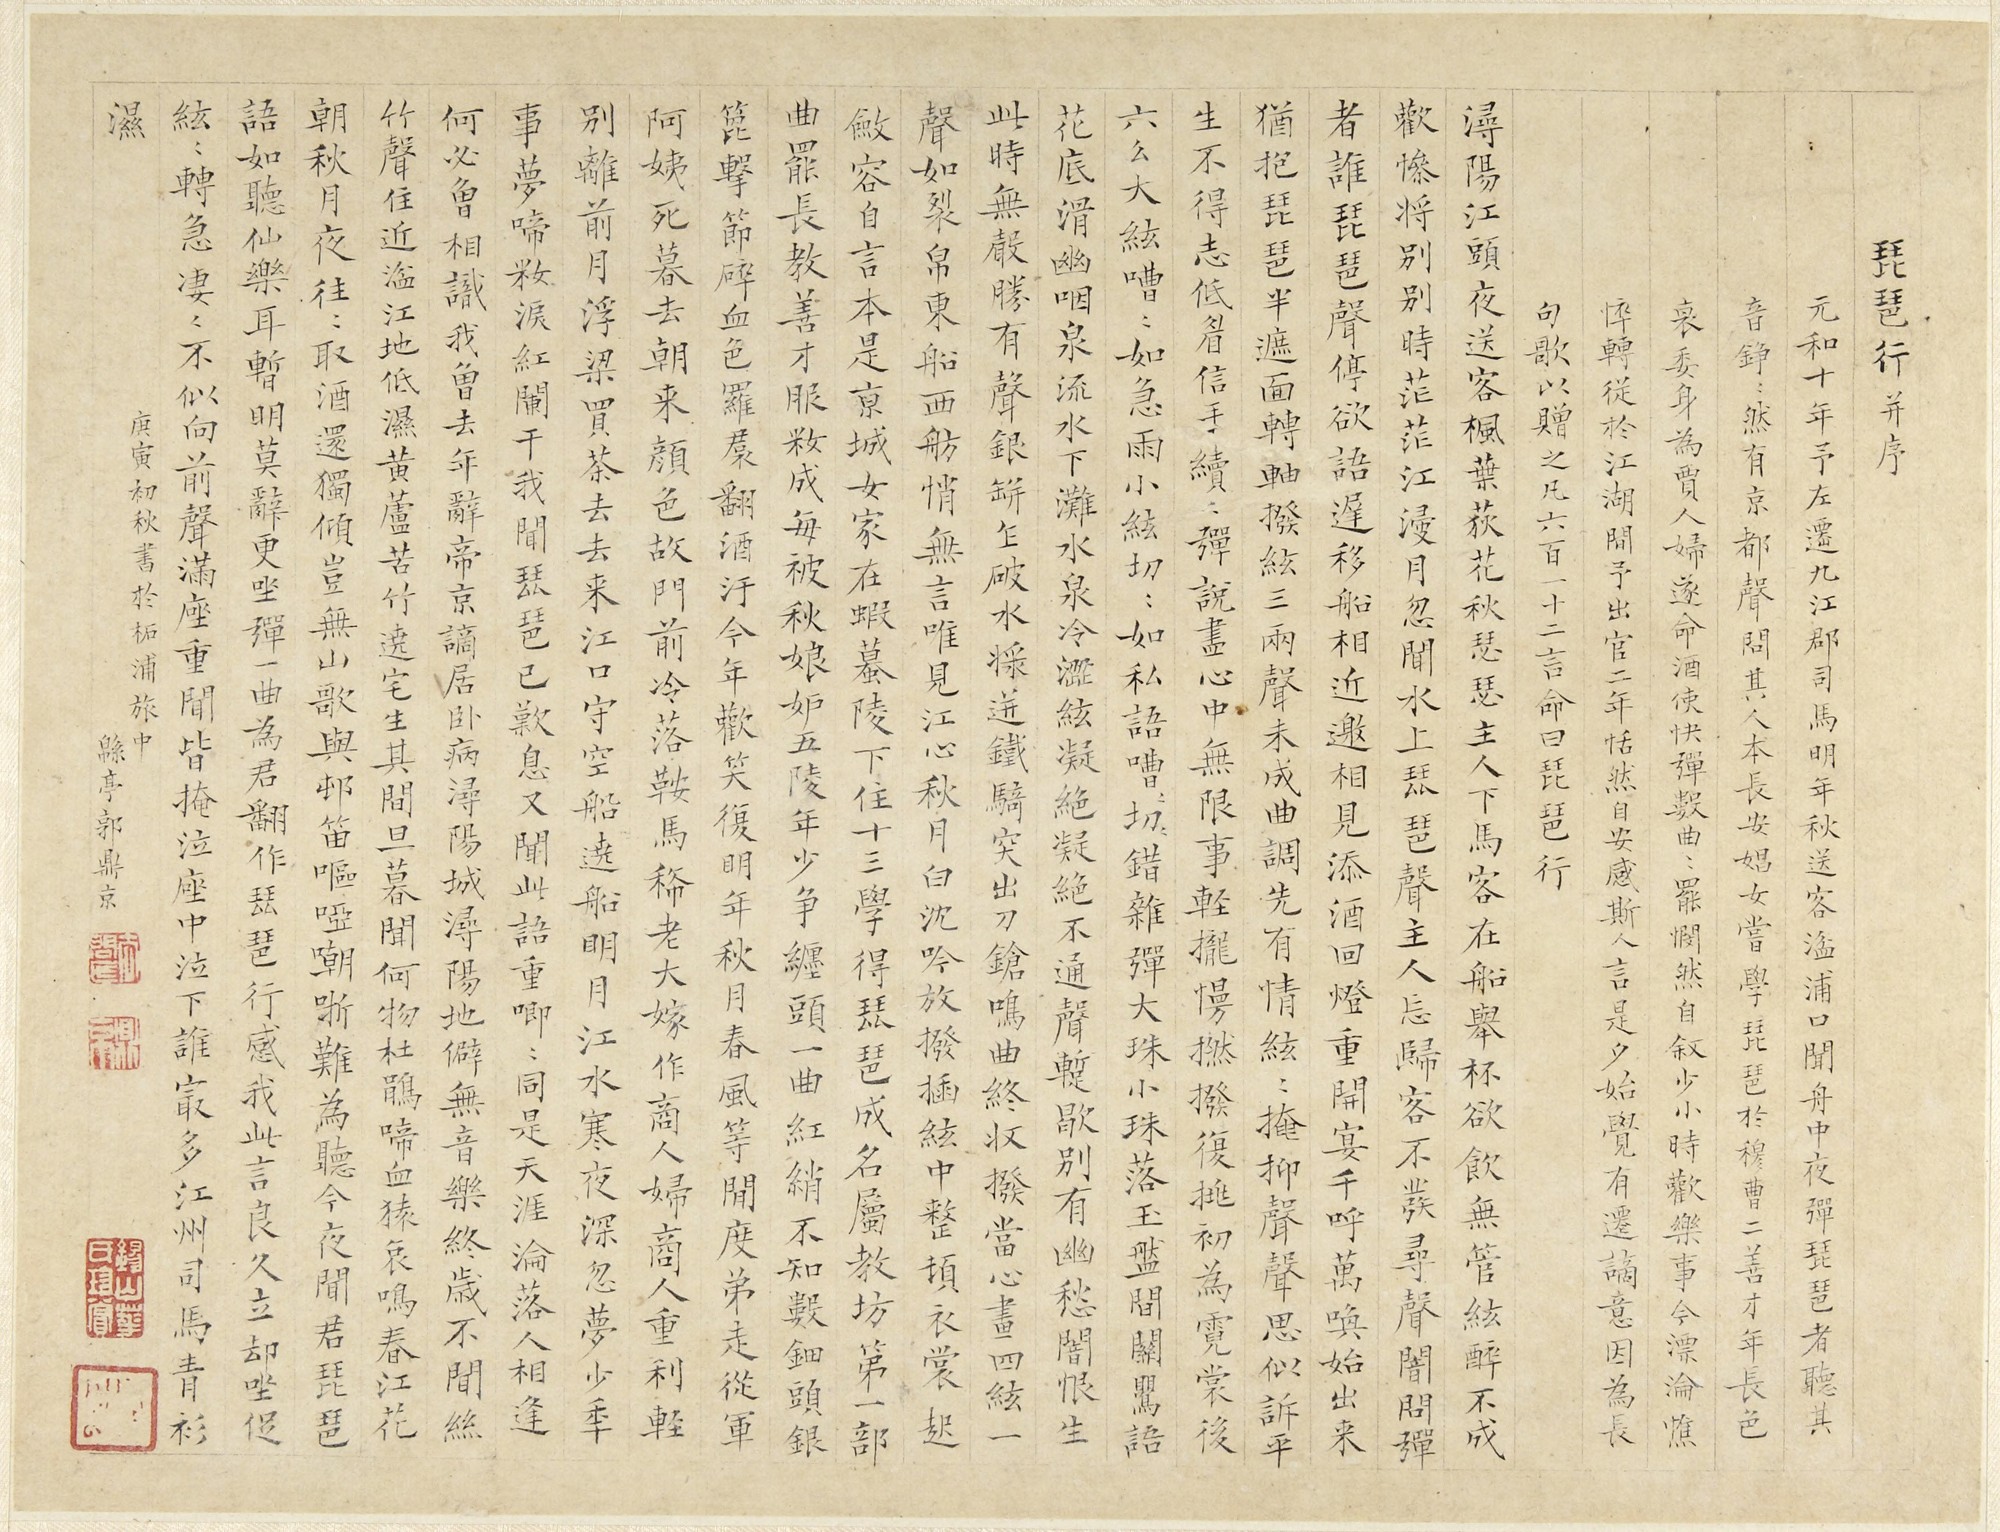 琵琶行并序
元和十年予左遷九江郡司馬明年秋送客湓浦口聞舟中夜彈琵琶者聽其
音錚〻然有京都聲問其人本長安娼女嘗學琵琶於穆曹二善才年長色
衰委身為賈人婦遂命酒使快彈數曲〻罷憫然自敘少小時歡樂事今漂淪憔
悴轉徙於江湖間予出官二年恬然自安感斯人言是夕始覺有遷謫意因為長
句歌以贈之凡六百一十二言命曰琵琶行
潯陽江頭夜送客楓葉荻花秋瑟瑟主人下馬客在船舉杯欲飲無管絃醉不成
歡慘将別別時茫茫江浸月忽聞水上琵琶聲主人忘歸客不發尋聲闇問彈
者誰琵琶聲停欲語遲移船相近邀相見添酒回燈重開宴千呼萬喚始出来
猶抱琵琶半遮面轉軸撥絃三兩聲未成曲調先有情絃〻掩抑聲聲思似訴平
生不得志低眉信手續〻彈說盡心中無限事輕攏慢撚撥復挑初為霓裳後
六么大絃嘈〻如急雨小絃切〻如私語嘈〻切〻錯雜彈大珠小珠落玉盤間關鶯語
花底滑幽咽泉流水下灘水泉冷澀絃凝絕凝絕不通聲蹔歇別有幽愁闇恨生
此時無聲勝有聲銀缾乍破水漿迸鐵騎突出刀鎗鳴曲終收撥當心畫四絃一
聲如裂帛東船西舫悄無言唯見江心秋月白沈吟放撥插絃中整頓衣裳起
斂容自言本是京城女家在蝦蟇陵下住十三學得琵琶成名屬教坊第一部
曲罷長教善才服粧成每被秋娘妒五陵年少争纏頭一曲紅綃不知數鈿頭銀
篦擊節碎血色羅裠翻酒汙今年歡笑復明年秋月春風等閒度弟走從軍
阿姨死暮去朝来顏色故門前冷落鞍馬稀老大嫁作商人婦商人重利輕
別離前月浮梁買茶去去来江口守空船遶船明月江水寒夜深忽夢少年
事夢啼粧淚紅闌干我聞琵琶已歎息又聞此語重唧〻同是天涯淪落人相逢
何必曾相識我曾去年辭帝京謫居卧病潯陽城潯陽地僻無音樂終歲不聞絲
竹聲住近湓江地低濕黄蘆苦竹遶宅生其間旦暮聞何物杜鵑啼血猿哀鳴春江花
朝秋月夜往〻取酒還獨傾豈無山歌與邨笛嘔啞嘲哳難為聽今夜聞君琵琶
語如聽仙樂耳暫明莫辭更坐彈一曲為君翻作琵琶行感我此言良久立却坐促
絃〻轉急凄〻不似向前聲滿座重聞皆掩泣座中泣下誰最多江州司馬青衫
濕
庚寅初秋書於柘浦旅中
緜亭郭鼎京